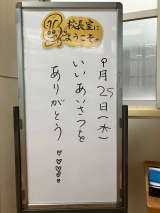 校長室に
ようこそ。
9月25日(木)
いいあいさつを
ありがとう!